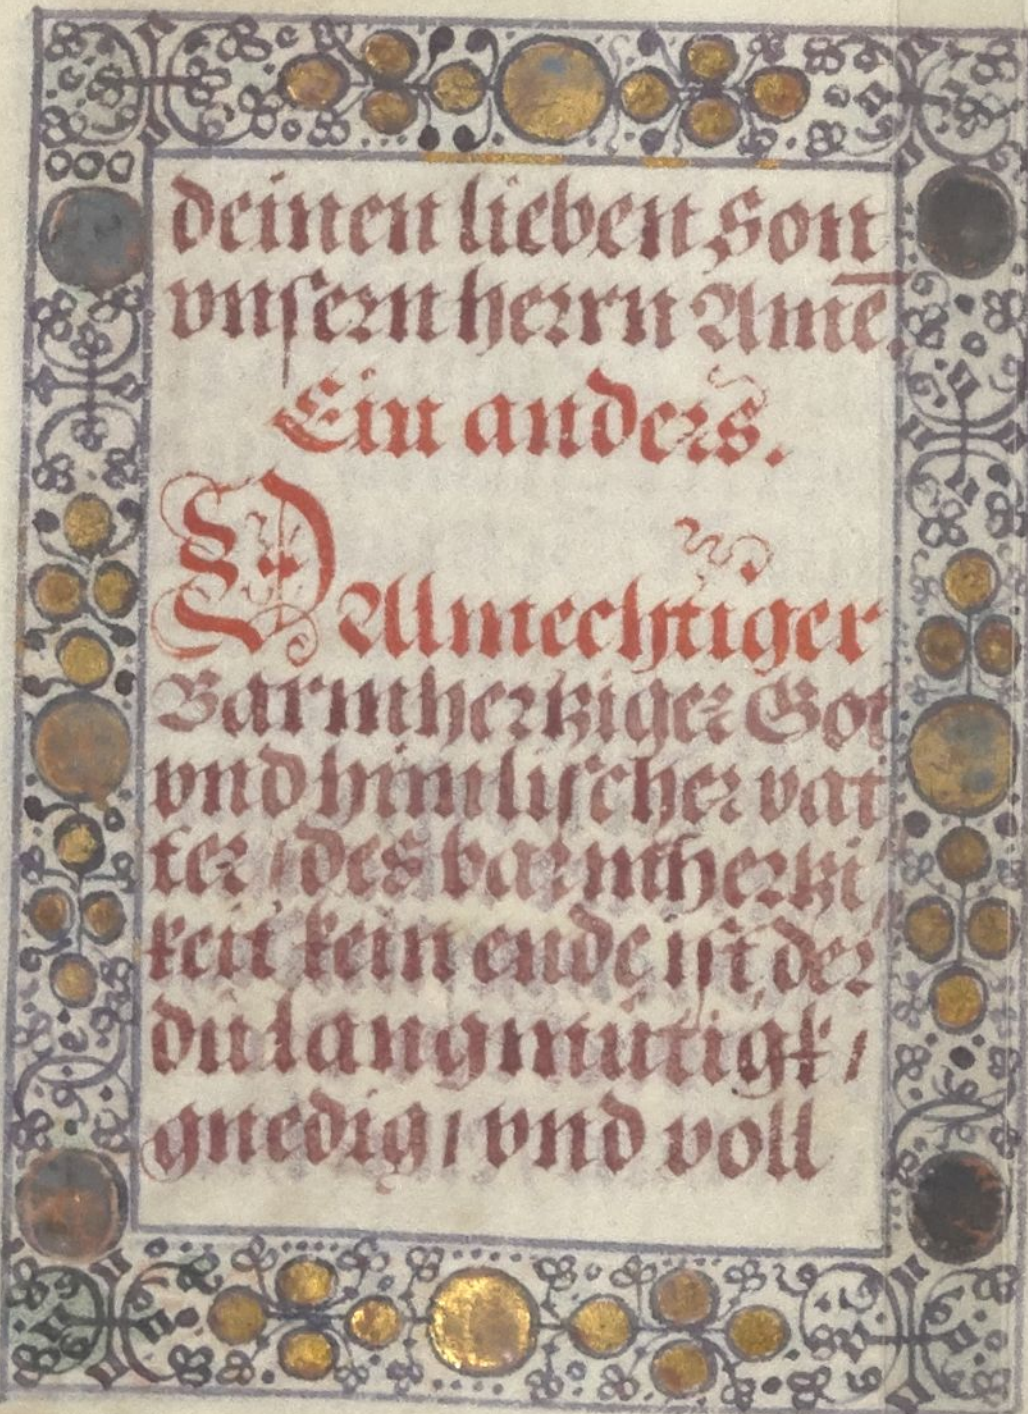 deinen lieben Son
vnſern herrn Amē.
Ein anders.
O Almechtiger
Barmhertziger Got
vnd himliſcher vat
ter / des barmhertzi
keit kein ende iſt der
du langmütigk /
gnedig / vnd voll